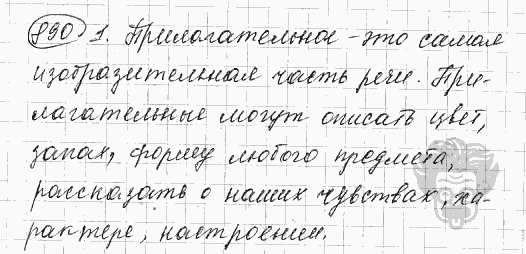 890) 1. Прилагательное - это самая
изобразительная часть речи. При-
лагательные могут описать цвет,
запах, форму любого предмета,
рассказать о наших чувствах, ха-
рактере, настроении.